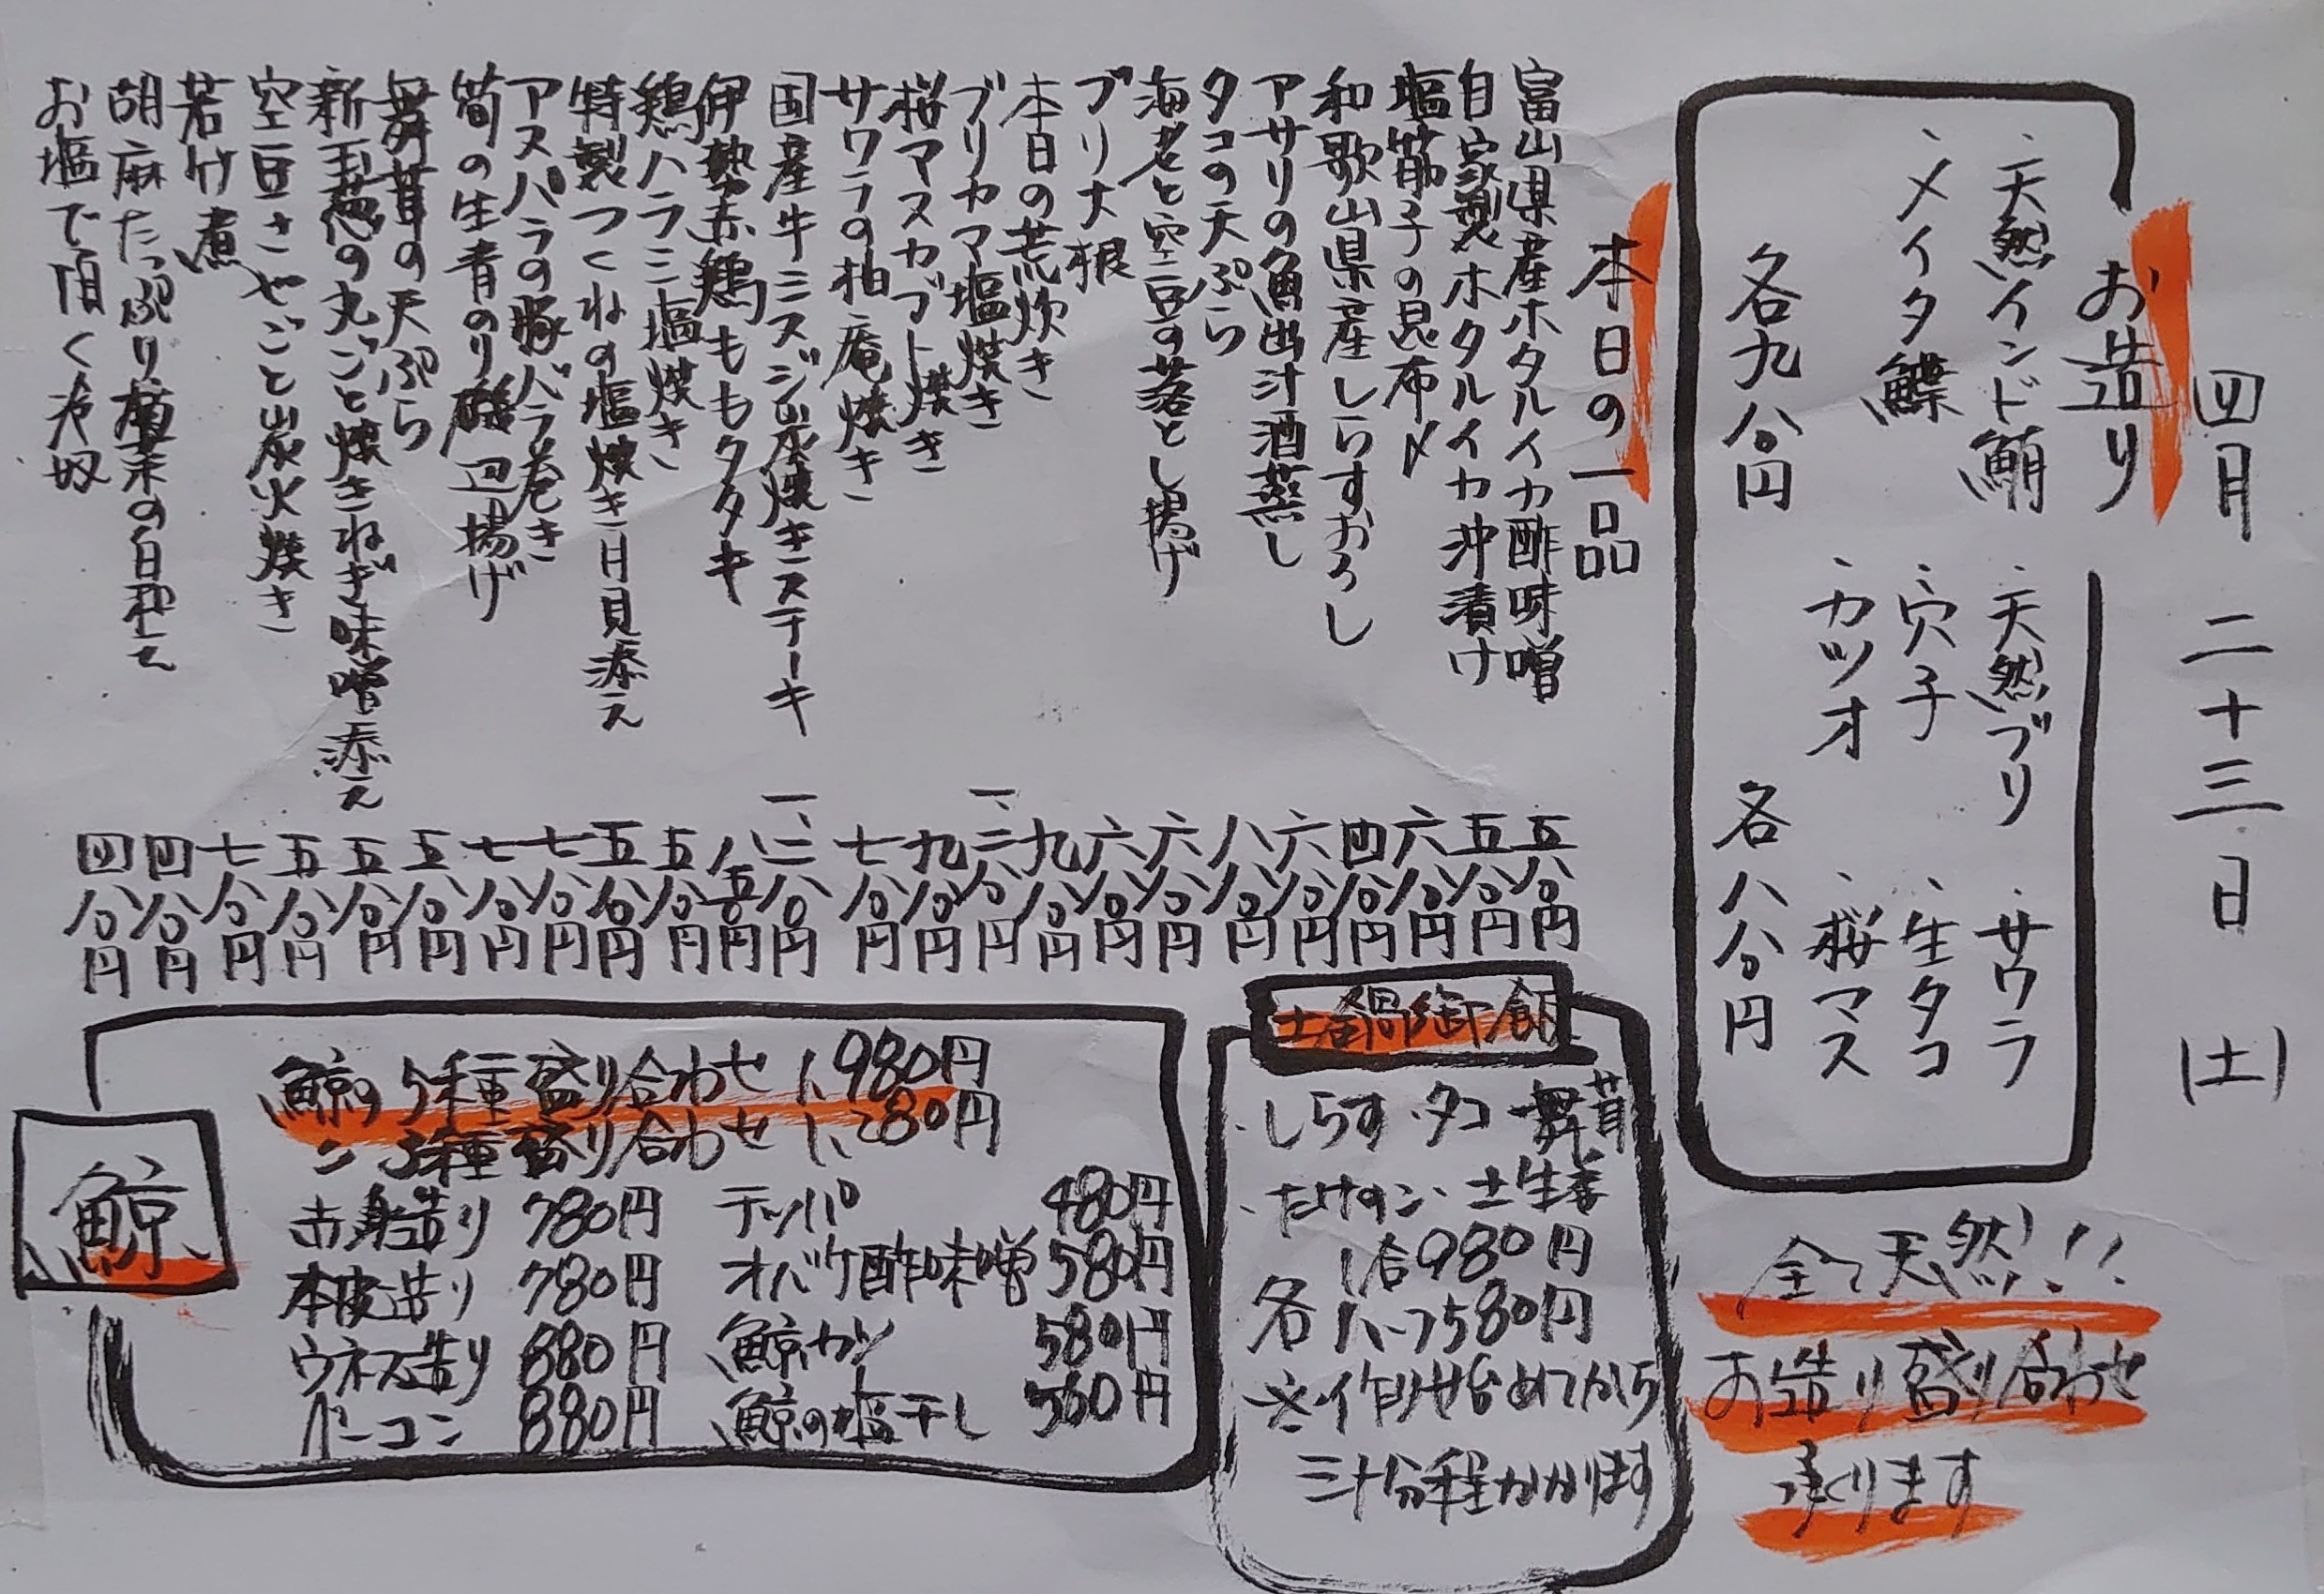 四月二十三日(土)
お造り
・天然インド鮪 ・天然ブリ ・サワラ
・メイタ鰈 ・穴子 ・生タコ
・カツオ ・桜マス
各九八〇円 各八八〇円
全て天然!!
お造り盛り合わせ
承ります
本日の一品
富山県産ホタルイカ酢味噌 五八〇円
自家製ホタルイカ沖漬け 五八〇円
塩筋子の昆布〆 六八〇円
和歌山県産しらすおろし 四八〇円
アサリの魚出汁酒蒸し 六八〇円
タコの天ぷら 八八〇円
海老と空豆の落とし揚げ 六八〇円
ブリ大根 六八〇円
本日の荒炊き 九八〇円
ブリカマ塩焼き 一、二八〇円
桜マスカブト焼き 九八〇円
サワラの柚庵焼き 七八〇円
国産牛ミスジ炭焼きステーキ 一、二八〇円
伊勢赤鶏ももタタキ 八五〇円
鶏ハラミ塩焼き 五八〇円
特製つくねの塩焼き月見添え 五八〇円
アスパラの豚バラ巻き 七八〇円
筍の生青のり磯辺揚げ 七八〇円
舞茸の天ぷら 五八〇円
新玉葱の丸ごと焼きねぎ味噌添え 五八〇円
空豆さやごと炭火焼き 五八〇円
若竹煮 七八〇円
胡麻たっぷり菜の白和え 四八〇円
お塩で頂く冷奴 四八〇円
土鍋御飯
・しらす・タコ 舞茸
・たけのこ・土生姜
各 1合980円
ハーフ580円
※作り始めてから
三十分程かかります
鯨
鯨の5種盛り合わせ 1,980円
〃 3種盛り合わせ 1,280円
赤身造り 780円 テッパ 480円
本皮造り 780円 オバケ酢味噌 580円
ウネス造り 880円 鯨カツ 580円
ベーコン 880円 鯨の塩干し 560円